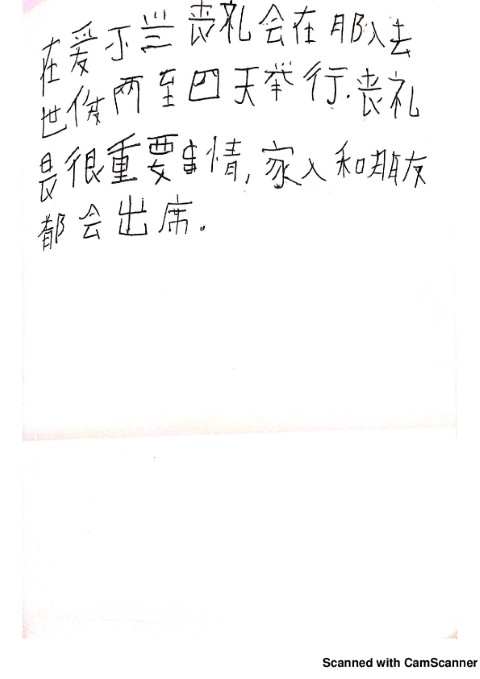 在爱尔兰丧礼会在那人去
世后两至四天举行.丧礼
是很重要事情,家人和朋友
都会出席。
Scanned with CamScanner